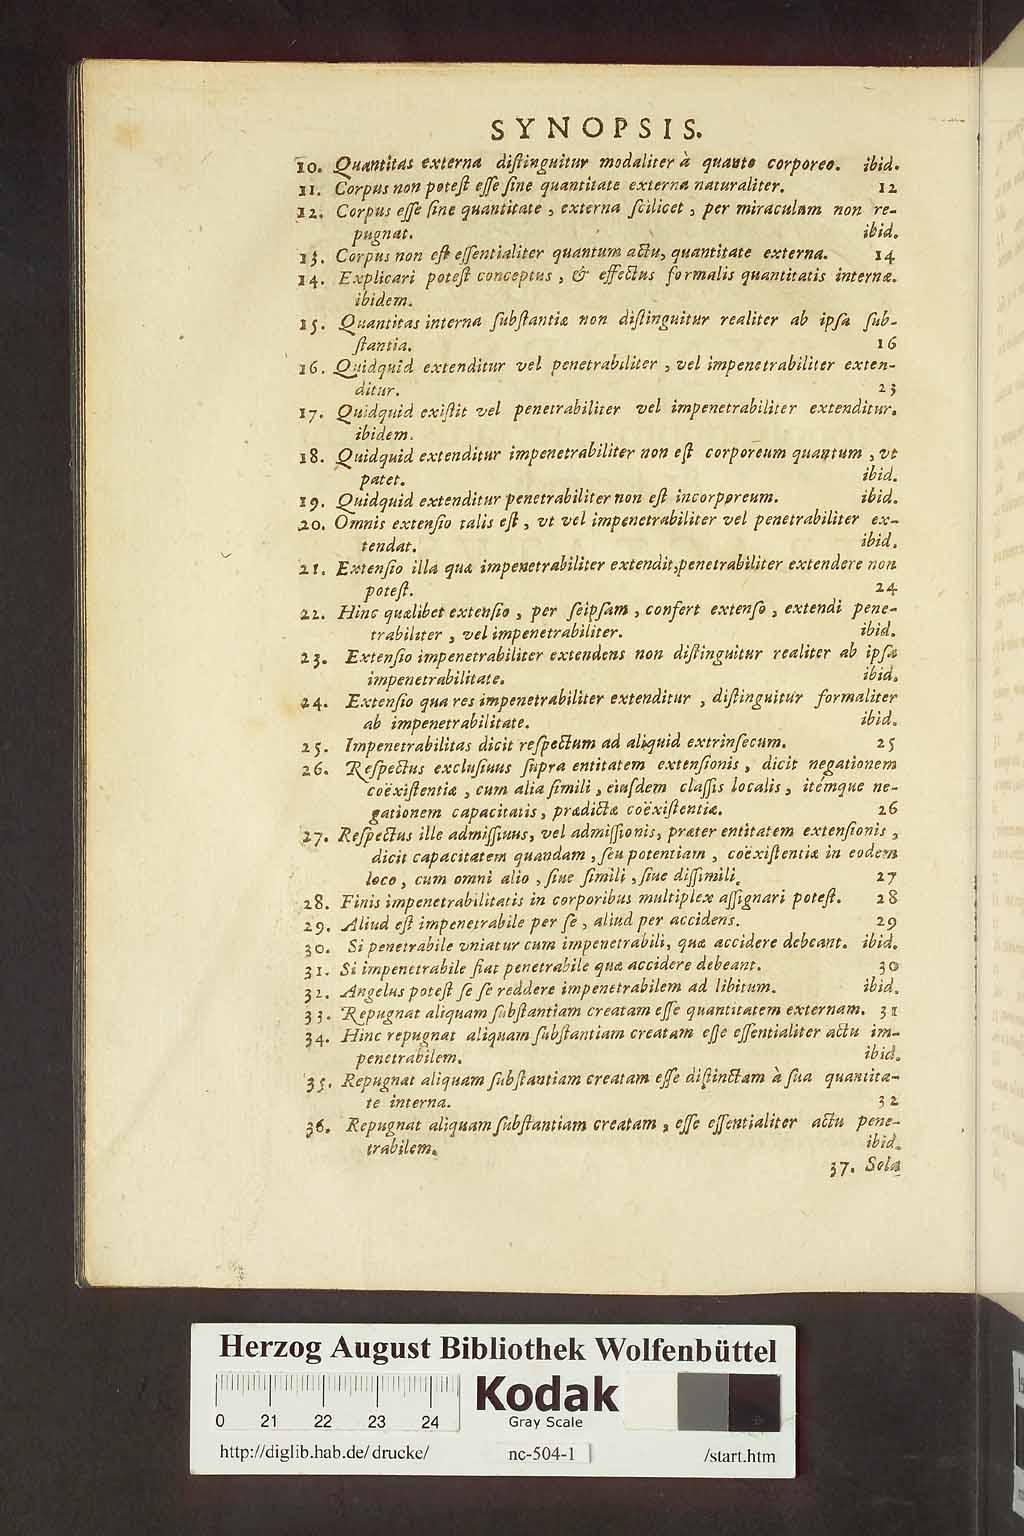 SYNOPSIS.
10. Quantitas externa distinguitur modaliter à quanto corporeo. ibid.
11. Corpus non potest esse sine quantitate externa naturaliter. 12
12. Corpus esse sine quantitate, externa scilicet, per miraculum non re-
pugnat. ibid.
13. Corpus non est essentialiter quantum actu, quantitate externa. 14
14. Explicari potest conceptus, & effectus formalis quantitatis internæ.
ibidem.
15. Quantitas interna substantiæ non distinguitur realiter ab ipsa sub-
stantia. 16
16. Quidquid extenditur vel penetrabiliter, vel impenetrabiliter exten-
ditur. 23
17. Quidquid existit vel penetrabiliter vel impenetrabiliter extenditur.
ibidem.
18. Quidquid extenditur impenetrabiliter non est corporeum quantum, vt
patet. ibid.
19. Quidquid extenditur penetrabiliter non est incorporeum. ibid.
20. Omnis extensio talis est, vt vel impenetrabiliter vel penetrabiliter ex-
tendat. ibid.
21. Extensio illa quæ impenetrabiliter extendit, penetrabiliter extendere non
potest. 24
22. Hinc quælibet extensio, per seipsam, confert extenso, extendi pene-
trabiliter, vel impenetrabiliter. ibid.
23. Extensio impenetrabiliter extendens non distinguitur realiter ab ipsa
impenetrabilitate. ibid.
24. Extensio qua res impenetrabiliter extenditur, distinguitur formaliter
ab impenetrabilitate. ibid.
25. Impenetrabilitas dicit respectum ad aliquid extrinsecum. 25
26. Respectus exclusiuus supra entitatem extensionis, dicit negationem
coëxistentiæ, cum alia simili, eiusdem classis localis, itémque ne-
gationem capacitatis, prædictæ coëxistentiæ. 26
27. Respectus ille admissiuus, vel admissionis, præter entitatem extensionis,
dicit capacitatem quandam, seu potentiam, coëxistentiæ in eodem
loco, cum omni alio, siue simili, siue dissimili. 27
28. Finis impenetrabilitatis in corporibus multiplex assignari potest. 28
29. Aliud est impenetrabile per se, aliud per accidens. 29
30. Si penetrabile vniatur cum impenetrabili, quæ accidere debeant. ibid.
31. Si impenetrabile fiat penetrabile quæ accidere debeant. 30
32. Angelus potest se se reddere impenetrabilem ad libitum. ibid.
33. Repugnat aliquam substantiam creatam esse quantitatem externam. 31
34. Hinc repugnat aliquam substantiam creatam esse essentialiter actu im-
penetrabilem. ibid.
35. Repugnat aliquam substantiam creatam esse distinctam à sua quantita-
te interna. 32
36. Repugnat aliquam substantiam creatam, esse essentialiter actu pene-
trabilem. ibid.
37. Sola
Herzog August Bibliothek Wolfenbüttel
Kodak
Gray Scale
0 21 22 23 24
http://diglib.hab.de/drucke/ nc-504-1 /start.htm